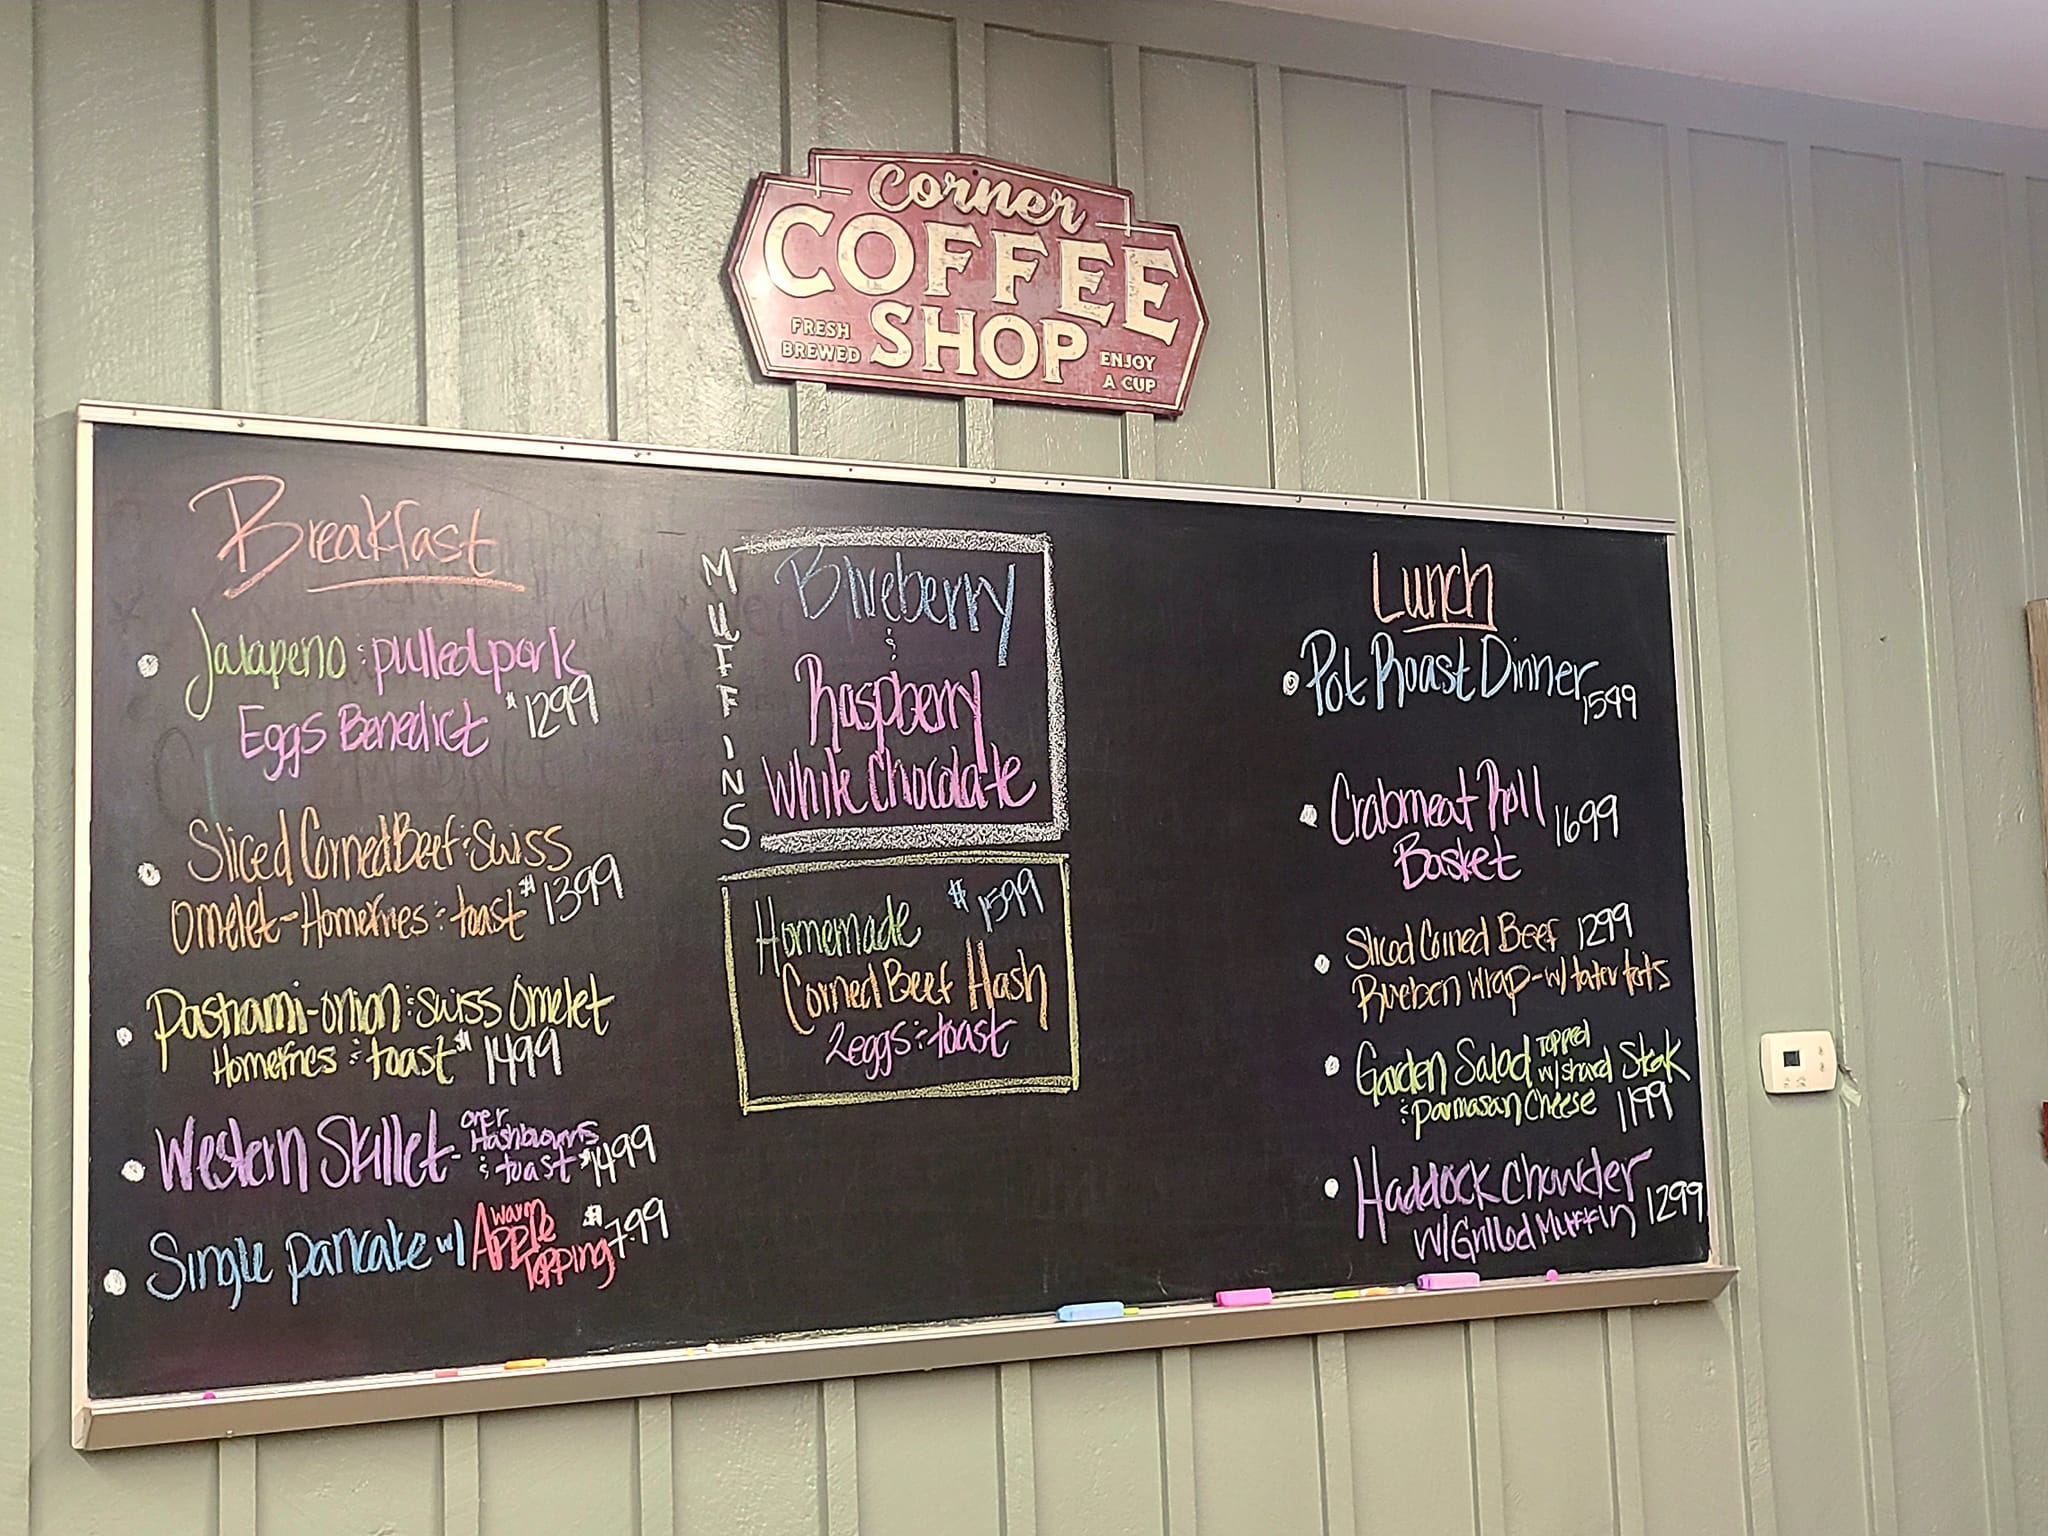 Corner
COFFEE
SHOP
FRESH
BREWED
ENJOY
A CUP
Breakfast
Jalapeno & pulled pork
Eggs Benedict $1299
Sliced Corned Beef & Swiss
Omelet - Homefries & toast $1399
Pastrami - onion & Swiss Omelet
Homefries & toast $1499
Western Skillet - over
Hashbrowns
& toast $1499
Single pancake w/ warm
Apple
Topping $7.99
MUFFINS
Blueberry
&
Raspberry
White Chocolate
Homemade $1599
Corned Beef Hash
2 eggs & toast
Lunch
Pot Roast Dinner
1599
Crabmeat Roll
Basket 1699
Sliced Corned Beef 1299
Rueben Wrap - w/ tater tots
Garden Salad Topped
w/ shaved Steak
& Parmasan Cheese 1199
Haddock Chowder
W/ Grilled Muffin 1299